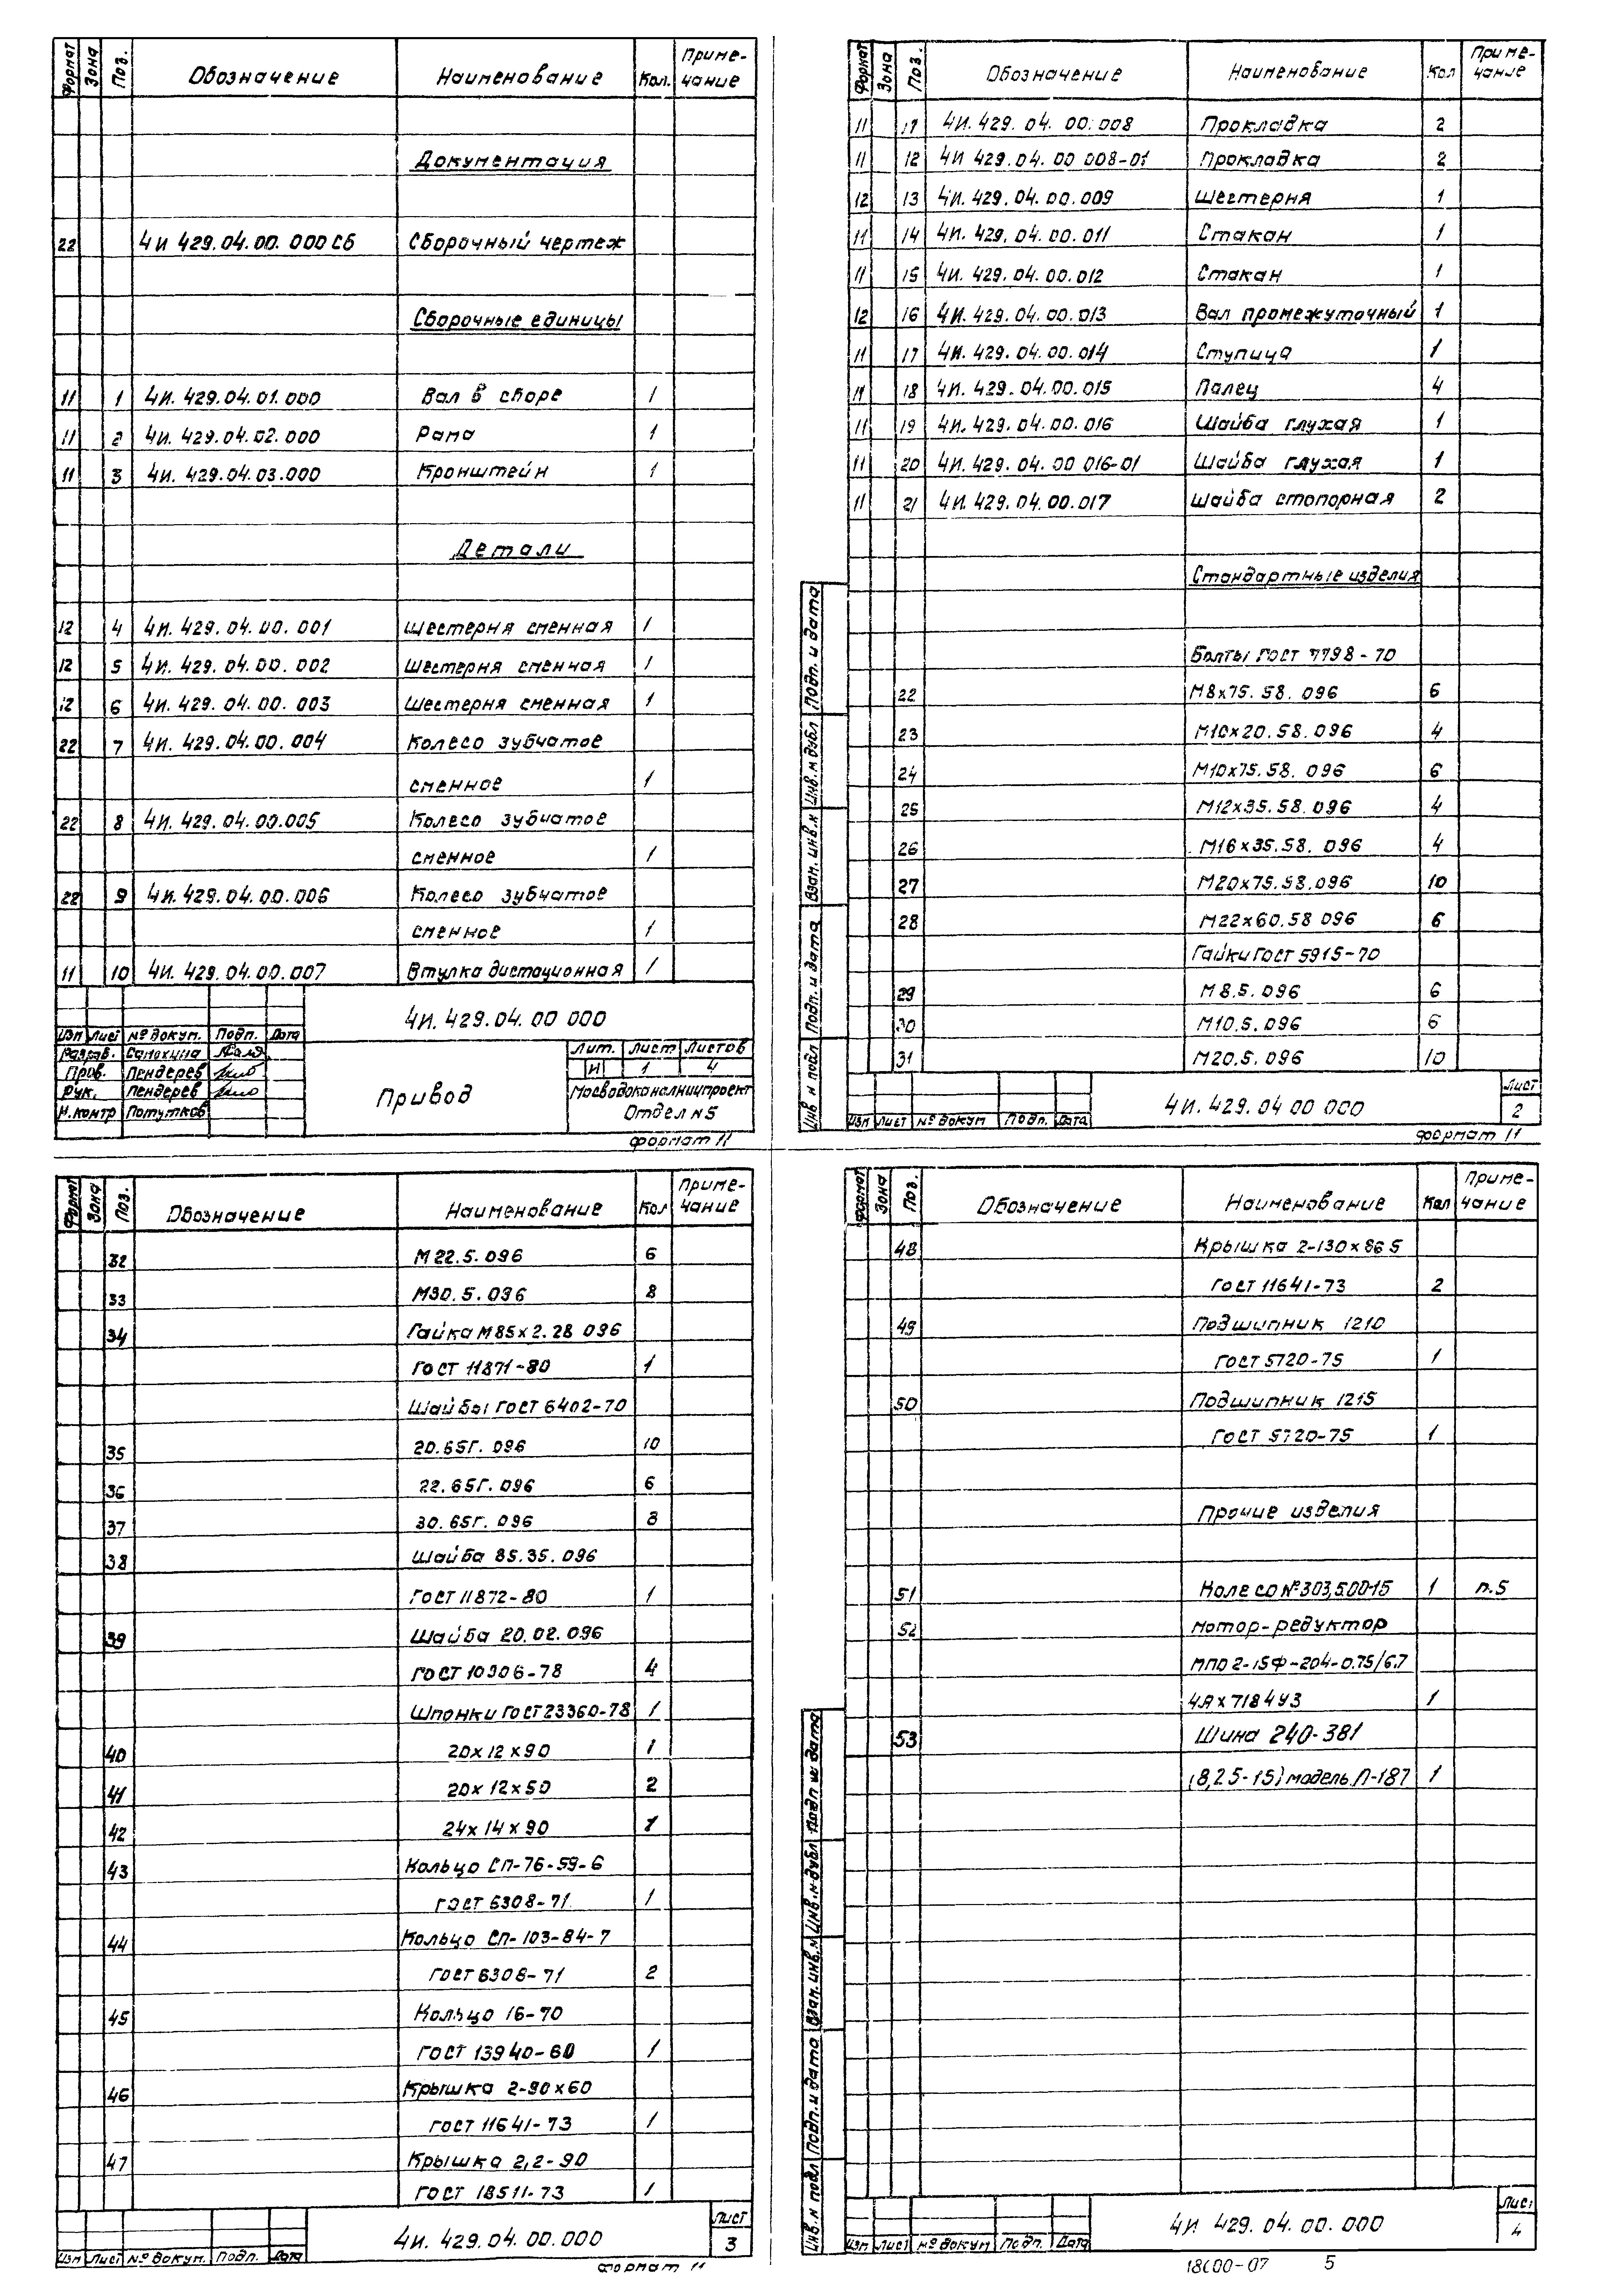 Формат Зона Поз. Обозначение Наименование Кол. Приме-
чание
Документация
22 4И 429.04.00.000 СБ Сборочный чертеж
Сборочные единицы
11 1 4И.429.04.01.000 Вал в сборе 1
11 2 4И.429.04.02.000 Рама 1
11 3 4И.429.04.03.000 Кронштейн 1
Детали
12 4 4И.429.04.00.001 Шестерня сменная 1
12 5 4И.429.04.00.002 Шестерня сменная 1
12 6 4И.429.04.00.003 Шестерня сменная 1
22 7 4И.429.04.00.004 Колесо зубчатое
сменное 1
22 8 4И.429.04.00.005 Колесо зубчатое
сменное 1
22 9 4И.429.04.00.006 Колесо зубчатое
сменное 1
11 10 4И.429.04.00.007 Втулка дистационная 1
4И.429.04.00 000
Изм Лист № докум. Подп. Дата
Разраб. Самохина
Пров. Пендерев
Рук. Пендерев
Н.контр Потутков
Привод
Лит. Лист Листов
И 1 4
Мосводоканалниипроект
Отдел №5
формат 11
Формат Зона Поз. Обозначение Наименование Кол Приме-
чание
11 11 4И.429.04.00.008 Прокладка 2
11 12 4И 429.04.00 008-01 Прокладка 2
12 13 4И.429.04.00.009 Шестерня 1
11 14 4И.429.04.00.011 Стакан 1
11 15 4И.429.04.00.012 Стакан 1
12 16 4И.429.04.00.013 Вал промежуточный 1
11 17 4И.429.04.00.014 Ступица 1
11 18 4И.429.04.00.015 Палец 4
11 19 4И.429.04.00.016 Шайба глухая 1
11 20 4И.429.04.00 016-01 Шайба глухая 1
11 21 4И.429.04.00.017 Шайба стопорная 2
Стандартные изделия
Болты ГОСТ 7798-70
22 М8х75.58.096 6
23 М10х20.58.096 4
24 М10х75.58.096 6
25 М12х35.58.096 4
26 М16х35.58.096 4
27 М20х75.58.096 10
28 М22х60.58 096 6
Гайки ГОСТ 5915-70
29 М8.5.096 6
30 М10.5.096 6
31 М20.5.096 10
Инв № подл Подп. и дата Взам. инв.№ Инв.№ дубл Подп. и дата
Изм Лист № докум Подп. Дата
4И.429.04 00 000
Лист
2
формат 11
Формат Зона Поз. Обозначение Наименование Кол Приме-
чание
32 М22.5.096 6
33 М30.5.096 8
34 Гайка М85х2.28 096
ГОСТ 11871-80 1
Шайбы ГОСТ 6402-70
35 20.65Г.096 10
36 22.65Г.096 6
37 30.65Г.096 8
38 Шайба 85.35.096
ГОСТ 11872-80 1
39 Шайба 20.02.096
ГОСТ 10906-78 4
Шпонки ГОСТ 23360-78 1
40 20х12х90 1
41 20х12х50 2
42 24х14х90 1
43 Кольцо СП-76-59-6
ГОСТ 6308-71 1
44 Кольцо СП-103-84-7
ГОСТ 6308-71 2
45 Кольцо 16-70
ГОСТ 13940-68 1
46 Крышка 2-90х60
ГОСТ 11641-73 1
47 Крышка 2,2-90
ГОСТ 18511-73 1
Изм Лист № докум. Подп. Дата
4И.429.04.00.000
Лист
3
формат 11
Формат Зона Поз. Обозначение Наименование Кол Приме-
чание
48 Крышка 2-130х86 5
ГОСТ 11641-73 2
49 Подшипник 1210
ГОСТ 5720-75 1
50 Подшипник 1215
ГОСТ 5720-75 1
Прочие изделия
51 Колесо №303,500-15 1 п.5
52 мотор-редуктор
МПО 2-15Ф-204-0.75/6.7
4АХ71В4У3 1
53 Шина 240-381
(8,25-15) модель Л-187 1
Инв.№ подл Подп. и дата Взам. инв.№ Инв.№ дубл Подп и дата
Изм Лист № докум Подп. Дата
4И 429.04.00.000
Лист
4
18600-07 5